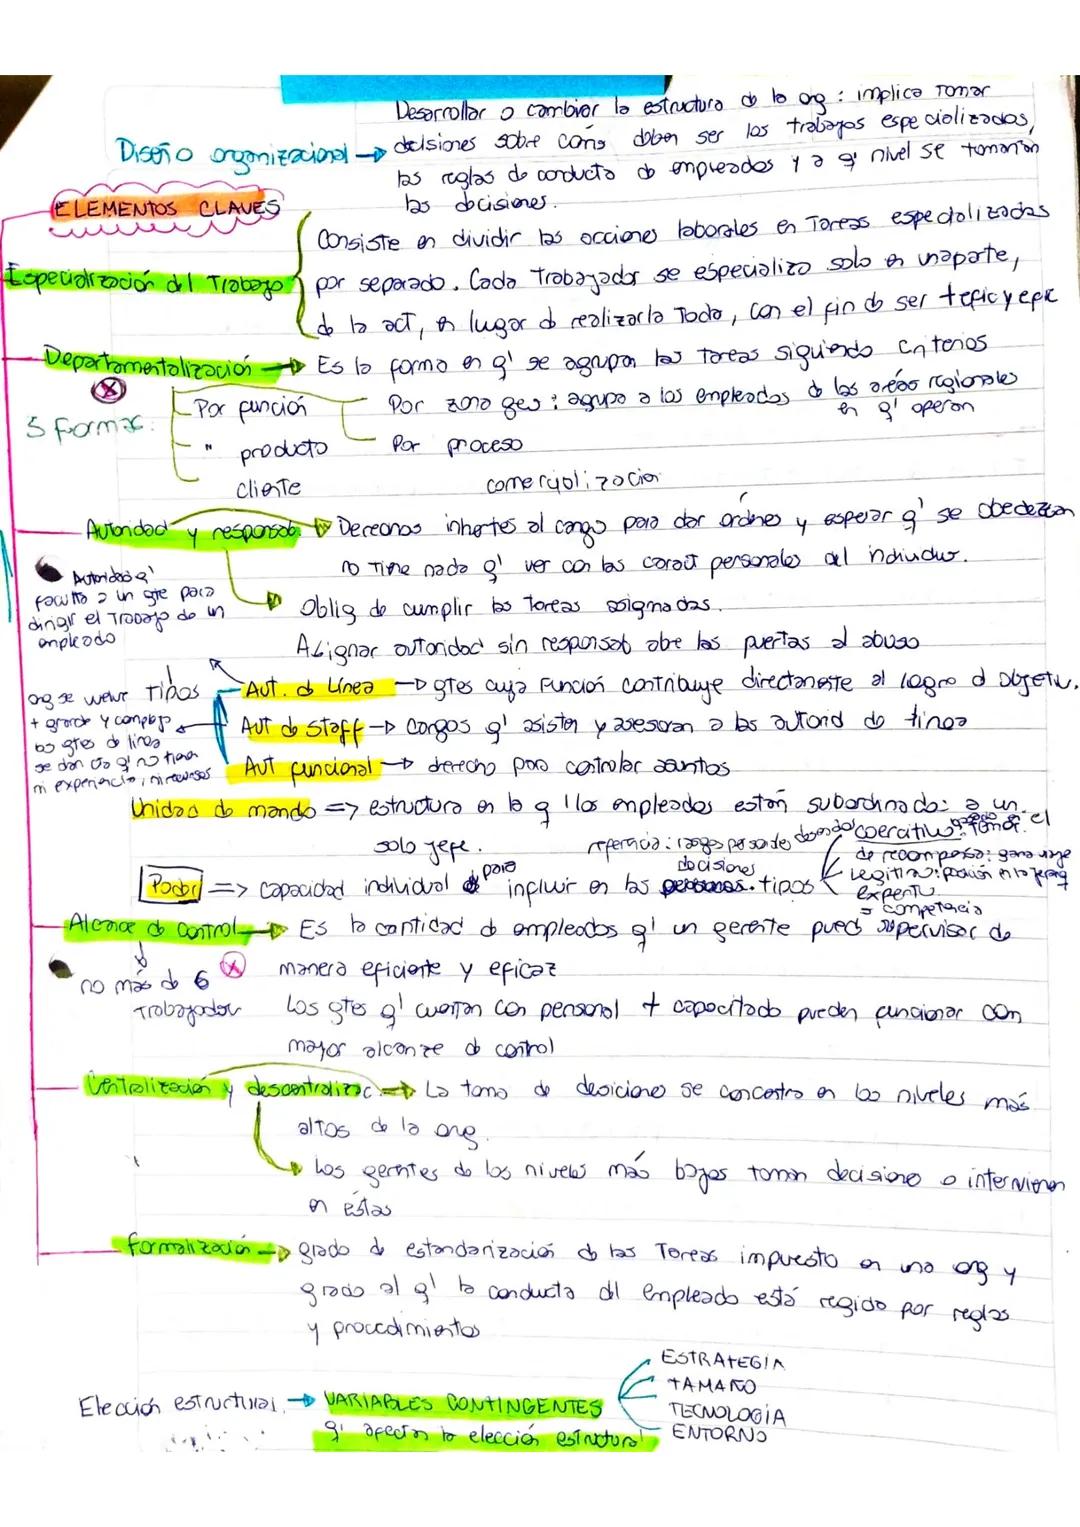 Desarrollar o cambiar la estructura de la org: implica tomar
Diseño organizacional → decisiones sobre cómo deben ser los trabajos especializados,
las reglas de conducta de empleados y a q' nivel se tomarán
las decisiones.
ELEMENTOS CLAVES
Consiste en dividir las acciones laborales en Tareas especializadas
Especialización del Trabajo por separado. Cada Trabajador se especializa solo en una parte,
de la act, en lugar d realizarla Toda, con el fin de ser + efic y efic
Departamentalización → Es la forma en q' se agrupan las tareas siguiendo criterios
5 formas: Por función Por zona geo: agrupa a los empleados d las áreas regionales
en q' operan
" producto Por proceso
cliente comercializacion
Autoridad y responsab. → Derechos inhertes al cargo para dar ordnes y esperar q' se obedezcan
no Tine nada q' ver con las caract personales del individuo.
Autoridad q'
faculta a un gte para
dirigir el Trabajo de un
empleado
Oblig de cumplir las Tareas asignadas.
Asignar autoridad sin responsab abre las puertas al abuso
Tipos
Aut. d Línea → gtes cuya Función contribuye directamente al logro d objetiv.
Aut de staff → cargos q' asisten y asesoran a las autorid de línea
Aut funcional → derecho para controlar asuntos
org se welve
+ grande y compleja
los gtes d línea
se dan cta q' no tienen
ni experiencia, ni recursos
Unidad de mando => estructura en la q' los empleados están subordinado: a un
solo jefe.
Poder => capacidad individual d para influir en las decisiones. tipos
coercitivo:
de recompensa:
legitimo: posición en la jerarq
experto
= competencia
referencia:
Alcance de control → Es la cantidad d empleados q' un gerente pued supervisar de
manera eficiente y eficaz
no más de 6
Trabajador
Los gtes q' cuentan con personal + capacitado pueden funcionar con
mayor alcanze d control
Centralización y descentralizac. → La toma de desiciones se concentra en los niveles más
altos de la org.
Los gerentes de los niveles más bajos toman decisiones o intervienen
en éstas
Formalización → grado d estandarización d las Tareas impuesto en una org y
grado al q' la conducta dl empleado está regido por reglas
y procedimientos
Elección estructural. → VARIABLES CONTINGENTES
q' afectan la elección estructural
ESTRATEGIA
TAMAÑO
TECNOLOGÍA
ENTORNO